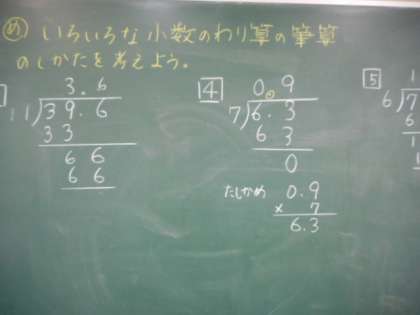 め いろいろな小数のわり算の筆算
のしかたを考えよう。
3.6
11)39.6
33
66
66
4
0.9
7)6.3
63
0
たしかめ 0.9
× 7
6.3
5
1
6)7
6
1
1